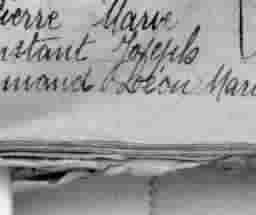 ierre Marie
nstant Joseph
mand Léon Mari